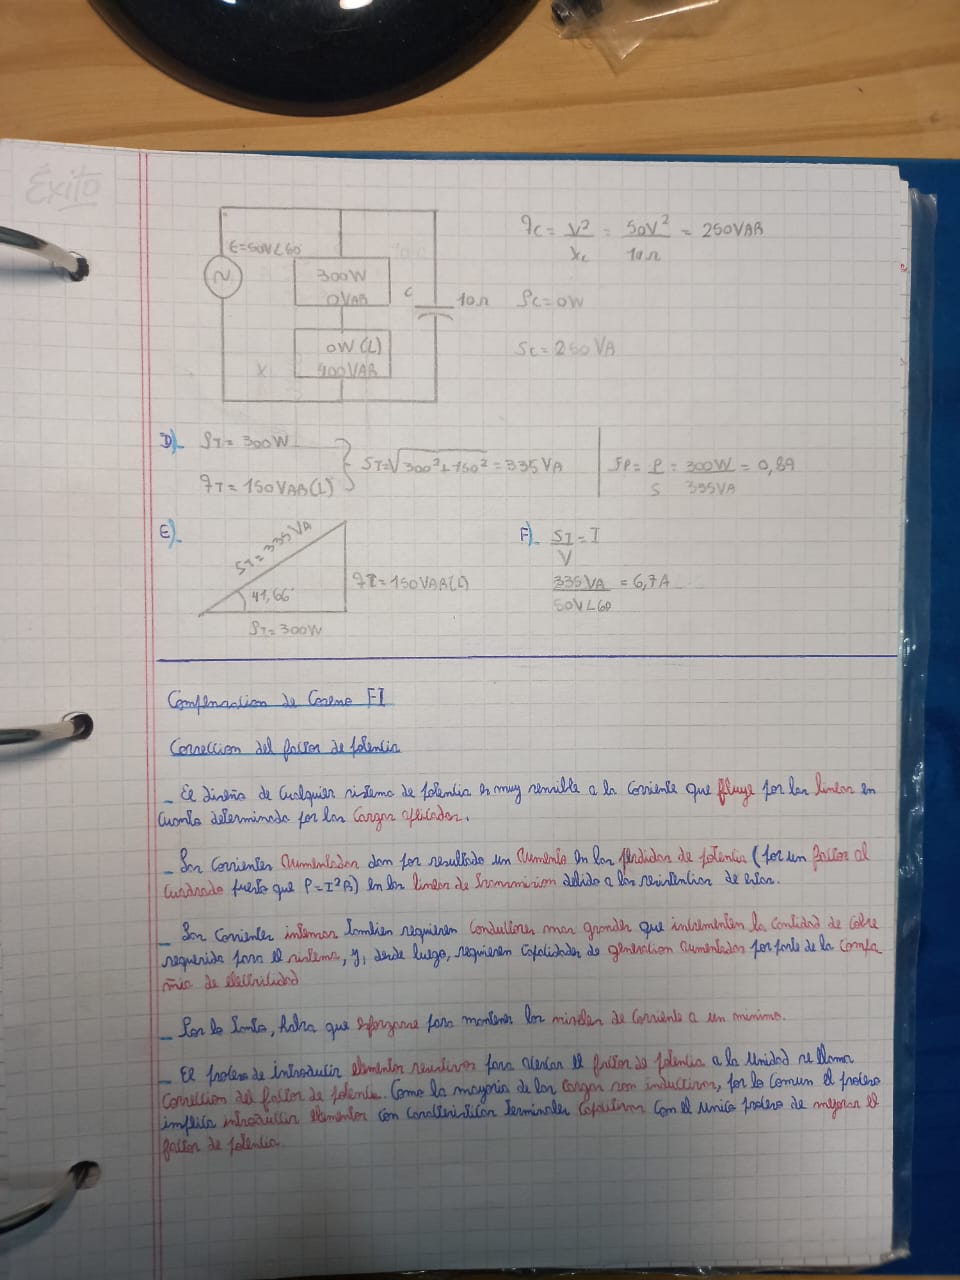 Éxito
E=50V∠60
300W
0VAR
0W(L)
400VAR
C
10Ω
qc = V² / Xc = 50V² / 10Ω = 250VAR
Pc=0W
Sc=250VA
D)
PT= 300W
qT= 150VAR(L)
ST=√300²+150² = 335VA
FP= P / S = 300W / 335VA = 0,89
E)
ST= 335VA
41,66°
qT=150VAR(L)
PT= 300W
F)
ST / V = I
335VA / 50V∠60 = 6,7A
Compensacion de Coseno FI
Correccion del factor de potencia
_ El diseño de cualquier sistema de potencia es muy sensible a la corriente que fluye por las lineas en
cuanto determinada por las cargas aplicadas.
_ Las corrientes aumentadas dan por resultado un aumento en las perdidas de potencia (por un factor al
cuadrado puesto que P=I²R) en las lineas de transmision debido a las resistencias de estas.
_ Las corrientes intensas tambien requieren conductores mas grandes que incrementen la cantidad de cobre
requerida para el sistema, y, desde luego, requieren capacidades de generacion aumentadas por parte de la compa
ñia de electricidad
_ Por lo tanto, habra que esforzarse para mantener los niveles de corriente a un minimo.
_ El proceso de introducir elementos reactivos para acercar el factor de potencia a la unidad se llama
correccion del factor de potencia. Como la mayoria de las cargas son inductivas, por lo comun el proceso
implica introducir elementos con caracteristicas terminales capacitivas con el unico proceso de mejorar el
factor de potencia.